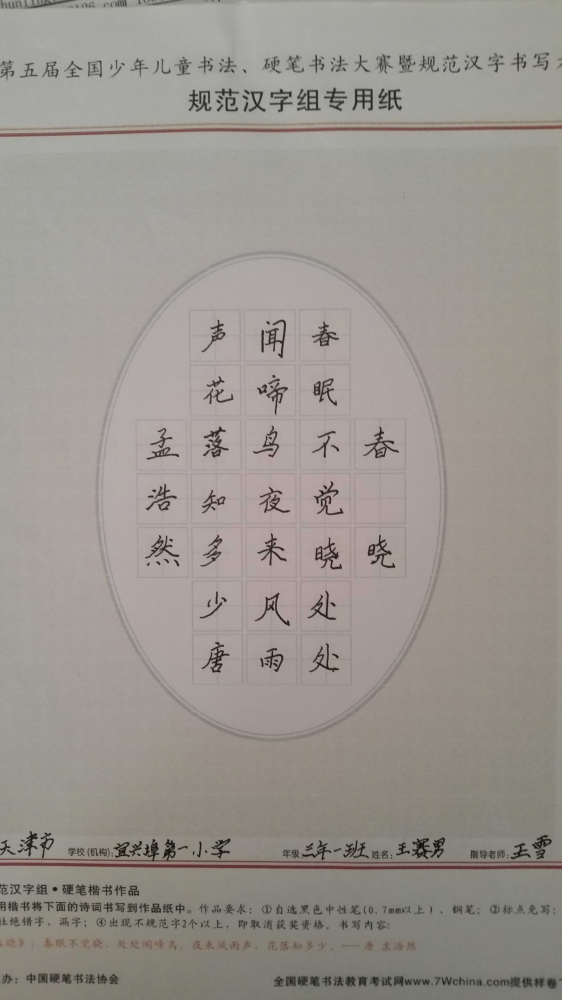 第五届全国少年儿童书法、硬笔书法大赛暨规范汉字书写
规范汉字组专用纸
春晓
春眠不觉晓处处
闻啼鸟夜来风雨
声花落知多少唐
孟浩然
天津市 学校(机构): 宜兴埠第一小学 年级 三年一班 姓名: 王赛男 指导老师: 王雪
范汉字组•硬笔楷书作品
用楷书将下面的诗词书写到作品纸中。作品要求：①自选黑色中性笔(0.7mm以上)、钢笔；②标点免写；
杜绝错字、漏字；④出现不规范字2个以上，即取消获奖资格。书写内容：
晓》：春眠不觉晓，处处闻啼鸟。夜来风雨声，花落知多少。—— 唐 孟浩然
办：中国硬笔书法协会 全国硬笔书法教育考试网www.7Wchina.com提供样卷